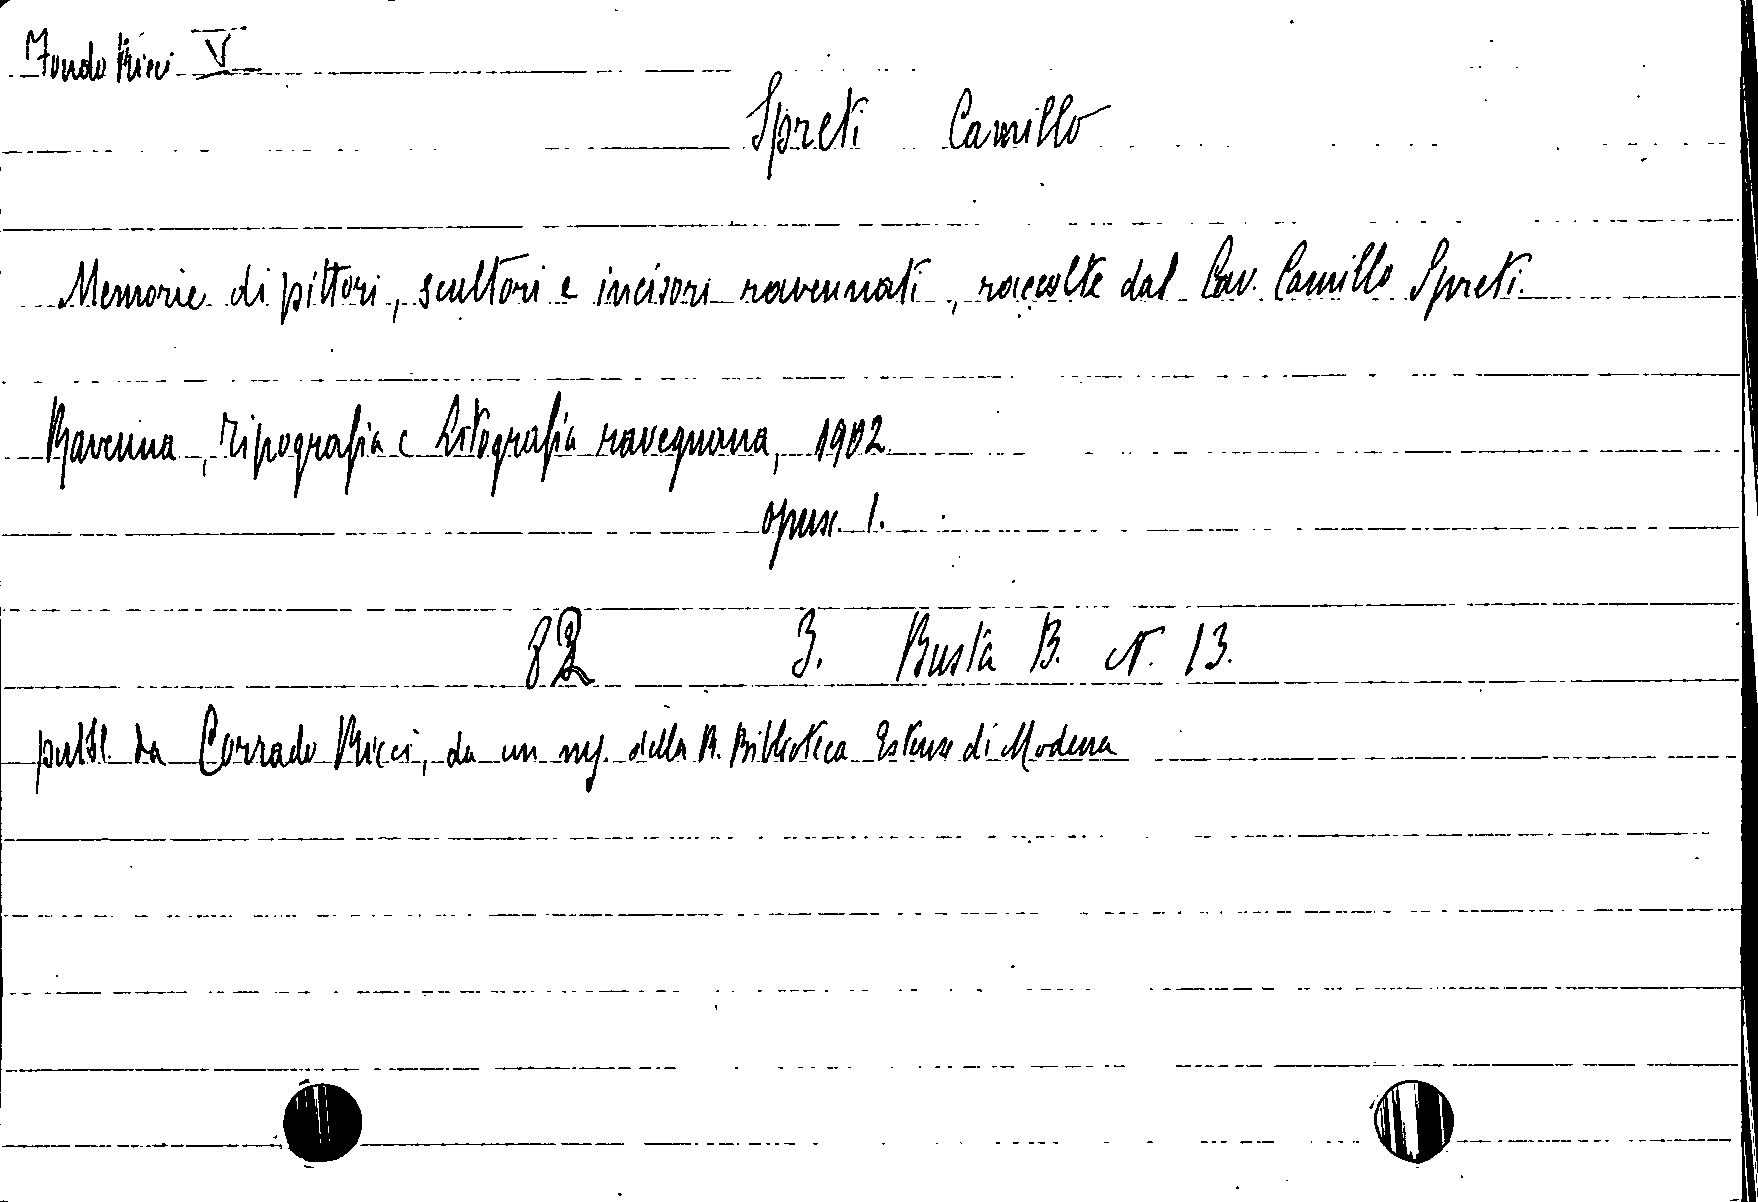 Fondo Ricci V
Spreti Camillo
Memorie di pittori, scultori e incisori ravennati, raccolte dal Cav. Camillo Spreti.
Ravenna, Tipografia e Litografia ravegnana, 1902
opusc. 1.
82 3. Busta B. N. 13.
pubbl. da Corrado Ricci, da un ms. della R. Biblioteca Estense di Modena